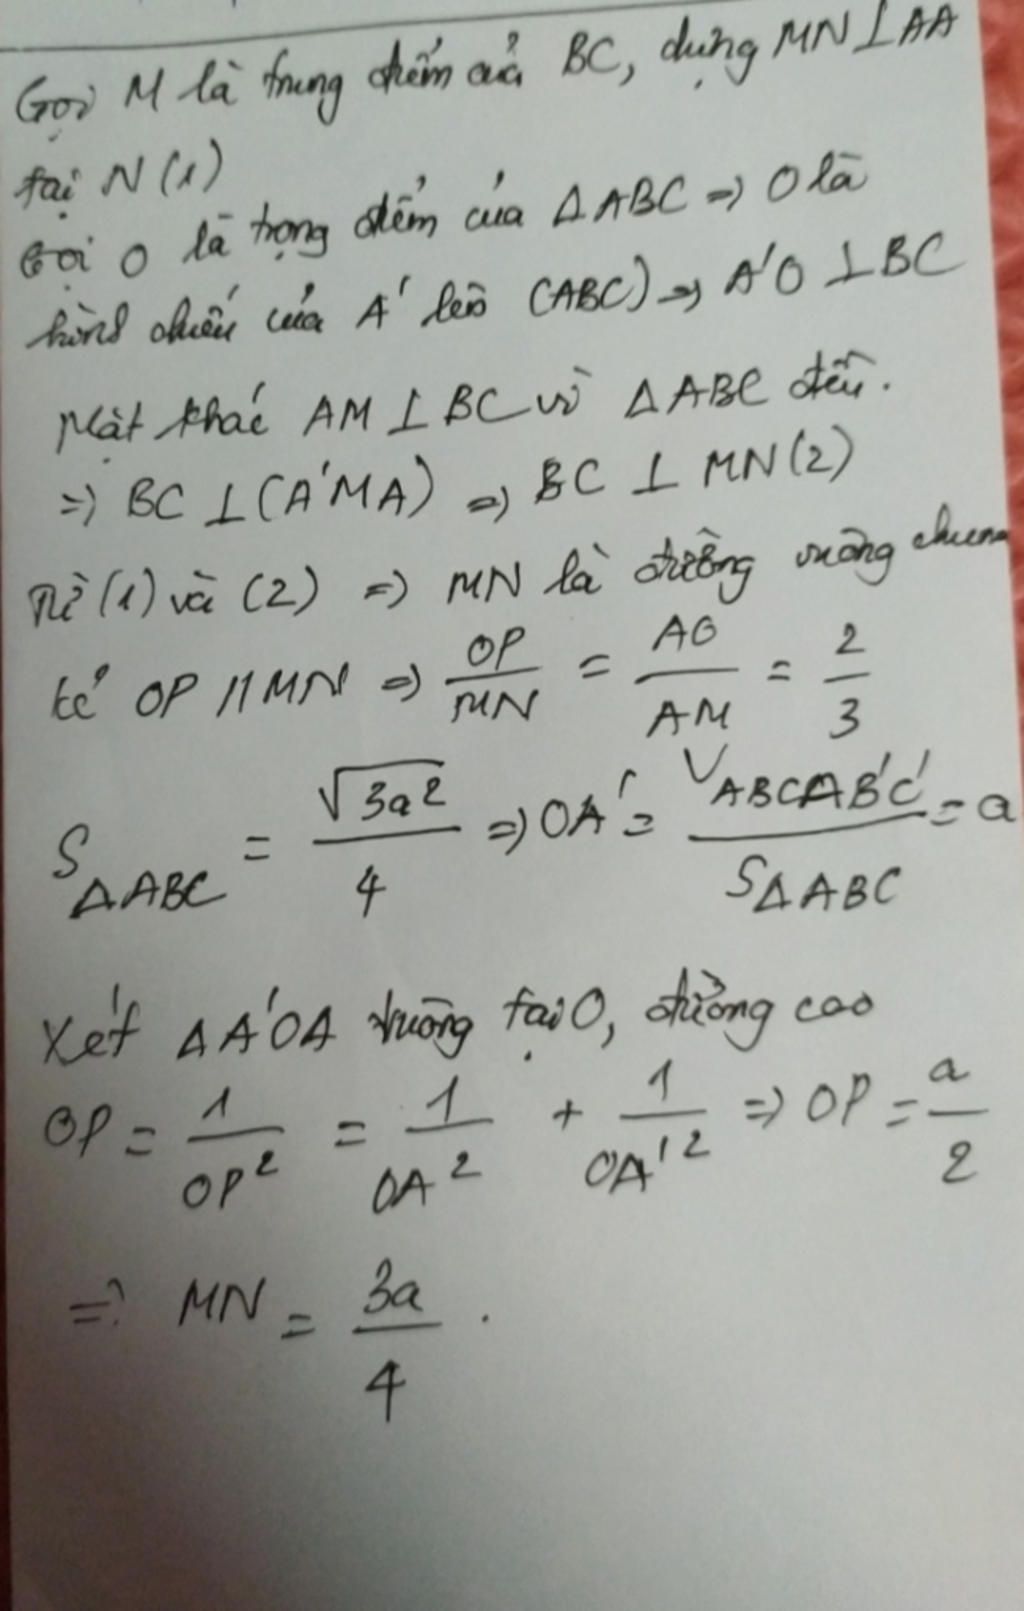 Gọi M là trung điểm của BC, dựng MN ⊥ AA
tại N (1)
Gọi O là trọng điểm của ΔABC => O là
hình chiếu của A' lên (ABC) => A'O ⊥ BC
Mặt khác AM ⊥ BC vì ΔABC đều.
=> BC ⊥ (A'MA) => BC ⊥ MN (2)
Từ (1) và (2) => MN là đường vuông chung
kẻ OP // MN => OP/MN = AO/AM = 2/3
S_ΔABC = √3a²/4 => OA' = V_ABCAB'C'/S_ΔABC = a
Xét ΔA'OA vuông tại O, đường cao
OP = 1/OP² = 1/OA² + 1/OA'² => OP = a/2
=> MN = 3a/4.